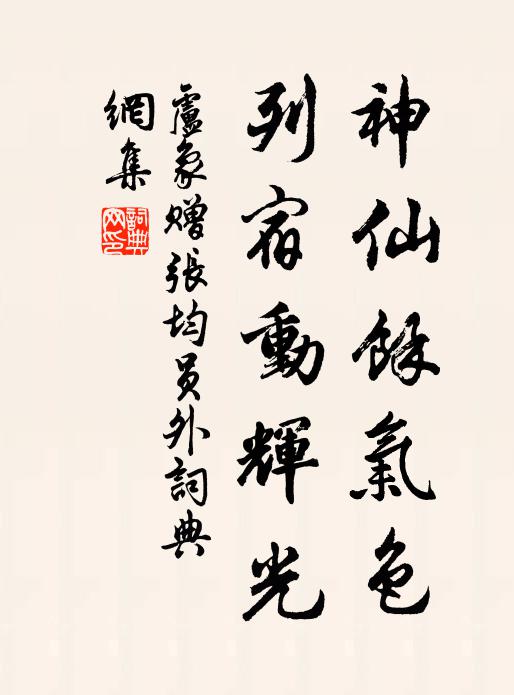 神仙餘氣色
列宿動輝光
盧象贈張均員外詞典
網集
詞典
网印